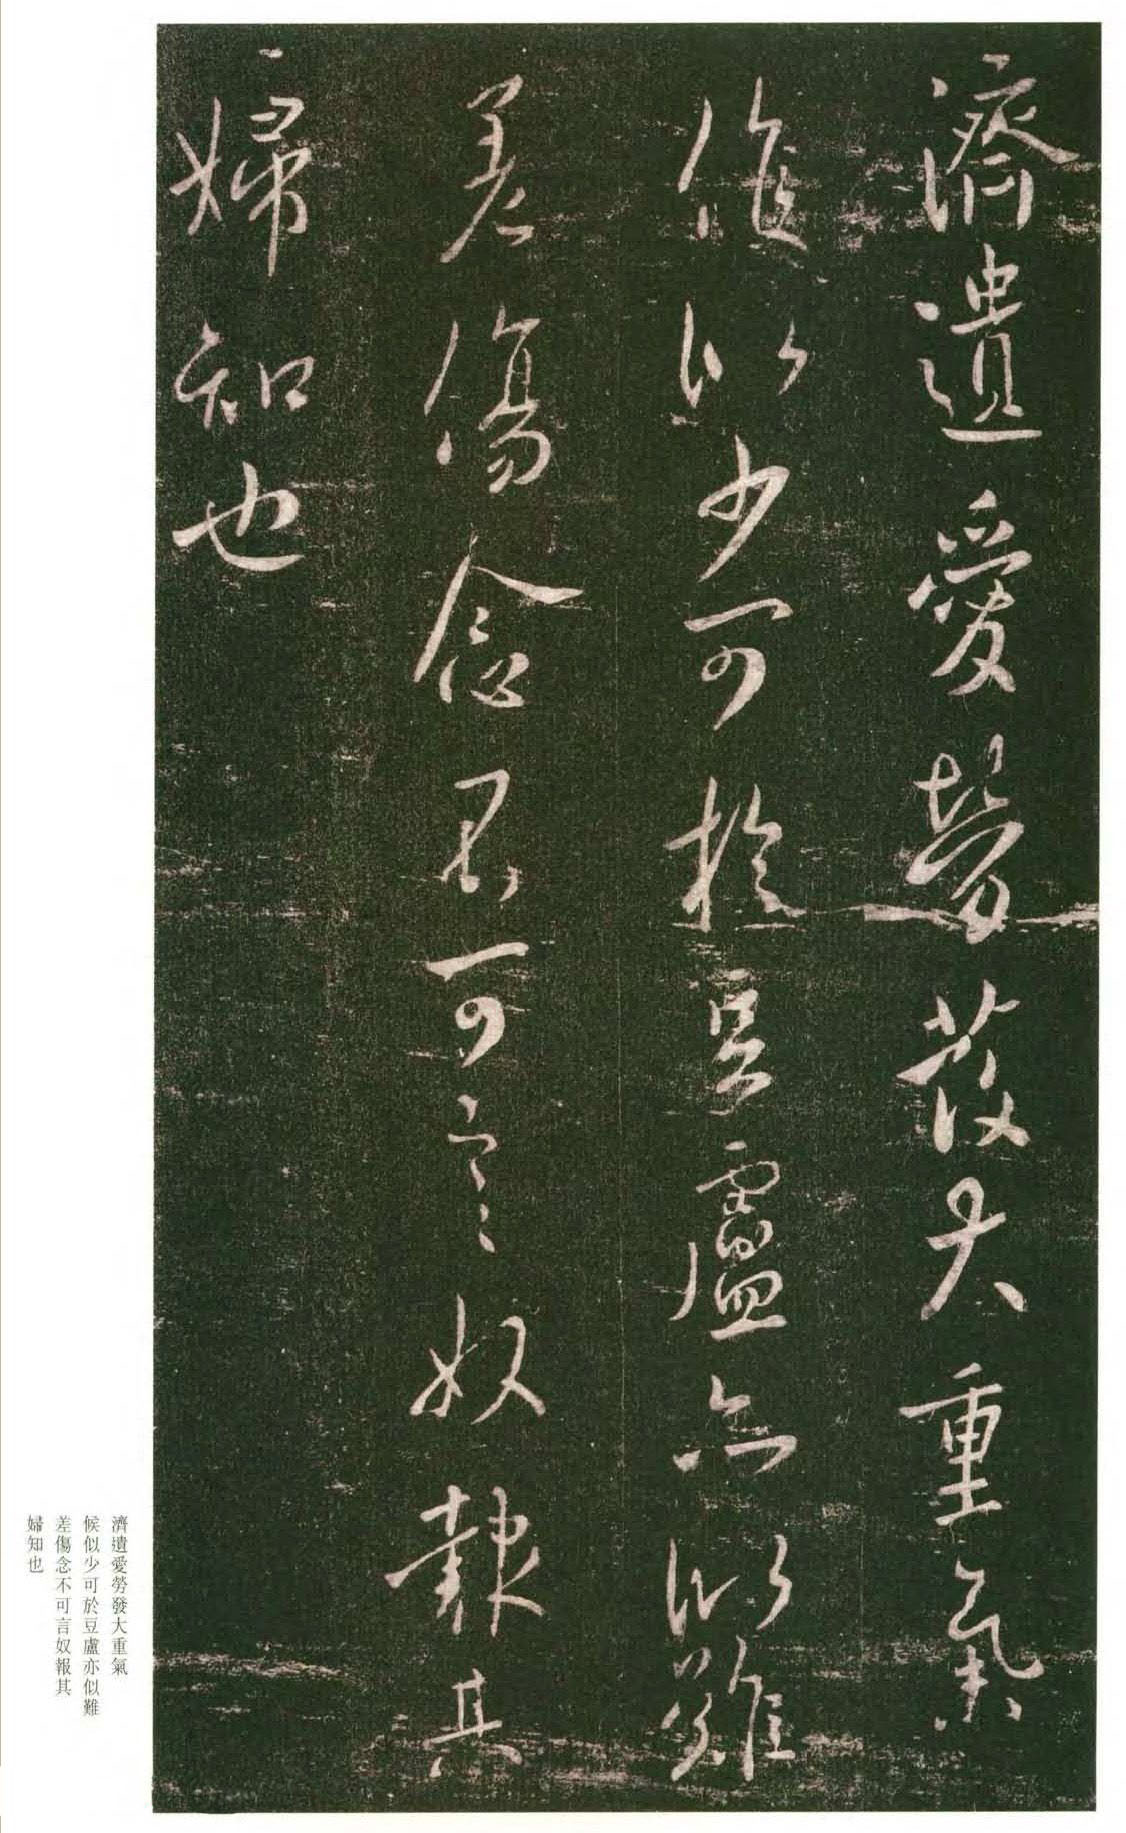 濟遺愛勞發大重氣
候似少可於豆盧亦似難
差傷念不可言奴報其
婦知也
濟遺愛勞發大重氣
候似少可於豆盧亦似難
差傷念不可言奴報其
婦知也